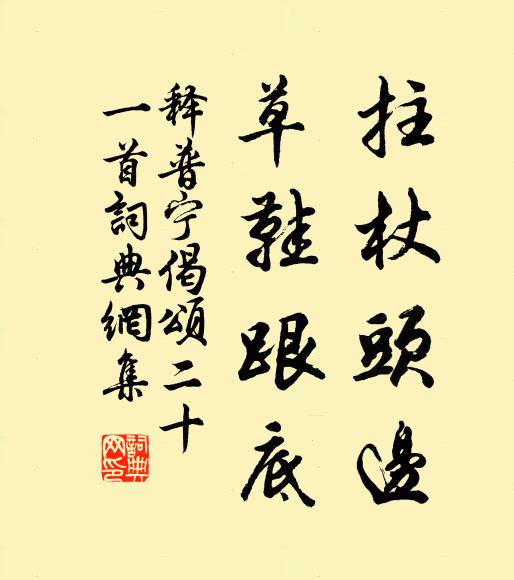 拄杖頭邊
草鞋跟底
释普宁偈頌二十
一首詞典網集
詞典网印